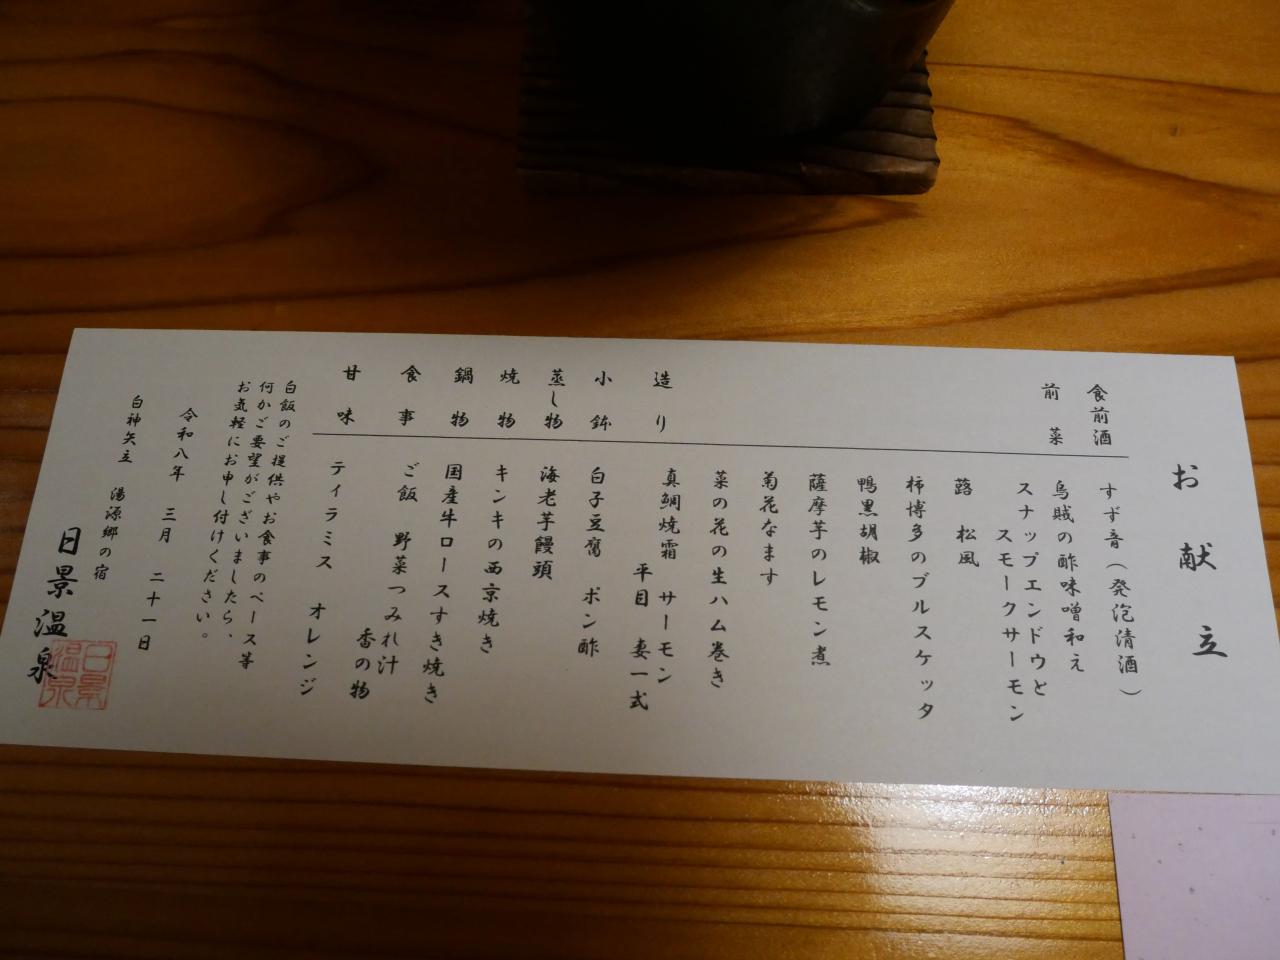 お献立
食前酒 すず音(発泡清酒)
前菜 烏賊の酢味噌和え
スナップエンドウと
スモークサーモン
蕗 松風
柿博多のブルスケッタ
鴨黒胡椒
薩摩芋のレモン煮
菊花なます
菜の花の生ハム巻き
造り 真鯛焼霜 サーモン
平目 妻一式
小鉢 白子豆腐 ポン酢
蒸し物 海老芋饅頭
焼物 キンキの西京焼き
鍋物 国産牛ロースすき焼き
食事 ご飯 野菜つみれ汁
香の物
甘味 ティラミス オレンジ
白飯のご提供やお食事のペース等
何かご要望がございましたら、
お気軽にお申し付けください。
令和八年 三月 二十一日
白神矢立 湯源郷の宿
日景温泉
日景温泉